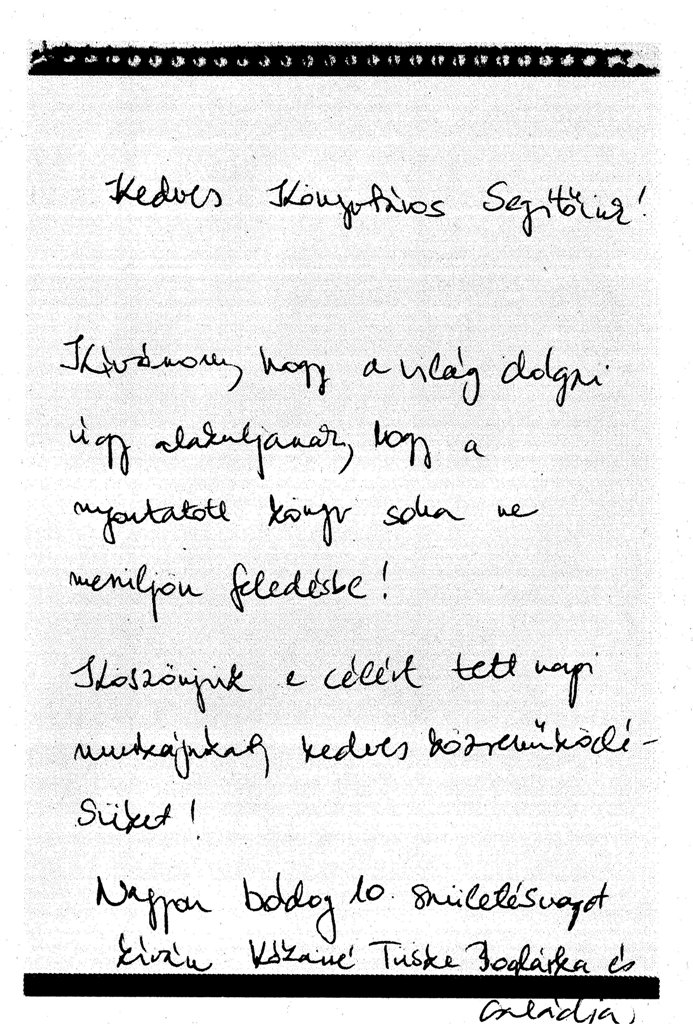 Kedves Könyvtáros Segítőink!
Kívánom, hogy a világ dolgai
úgy alakuljanak, hogy a
nyomtatott könyv soha ne
merüljön feledésbe!
Köszönjük e célért tett napi
munkájukat, kedves közreműködé-
süket!
Nagyon boldog 10. születésnapot
kíván Kázané Tüske Boglárka és
családja,